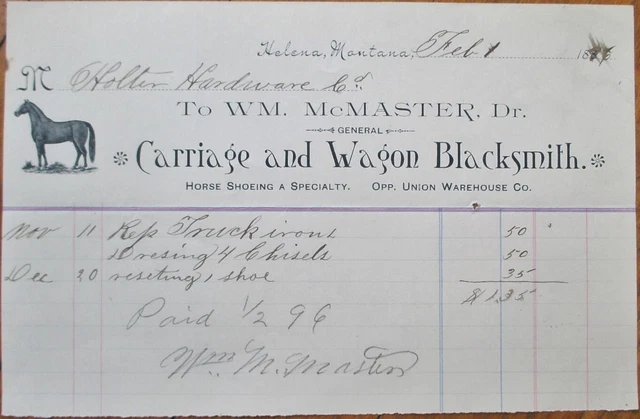 Helena, Montana, Feb 1 18
M Holter Hardware Co.
To WM. McMASTER, Dr.
GENERAL
Carriage and Wagon Blacksmith.
HORSE SHOEING A SPECIALTY. OPP. UNION WAREHOUSE CO.
Nov 11 Rep Truck irons 50
Dresing 4 Chisels 50
Dec 20 reseting 1 shoe 35
$1.35
Paid 1/2 96
Wm McMaster